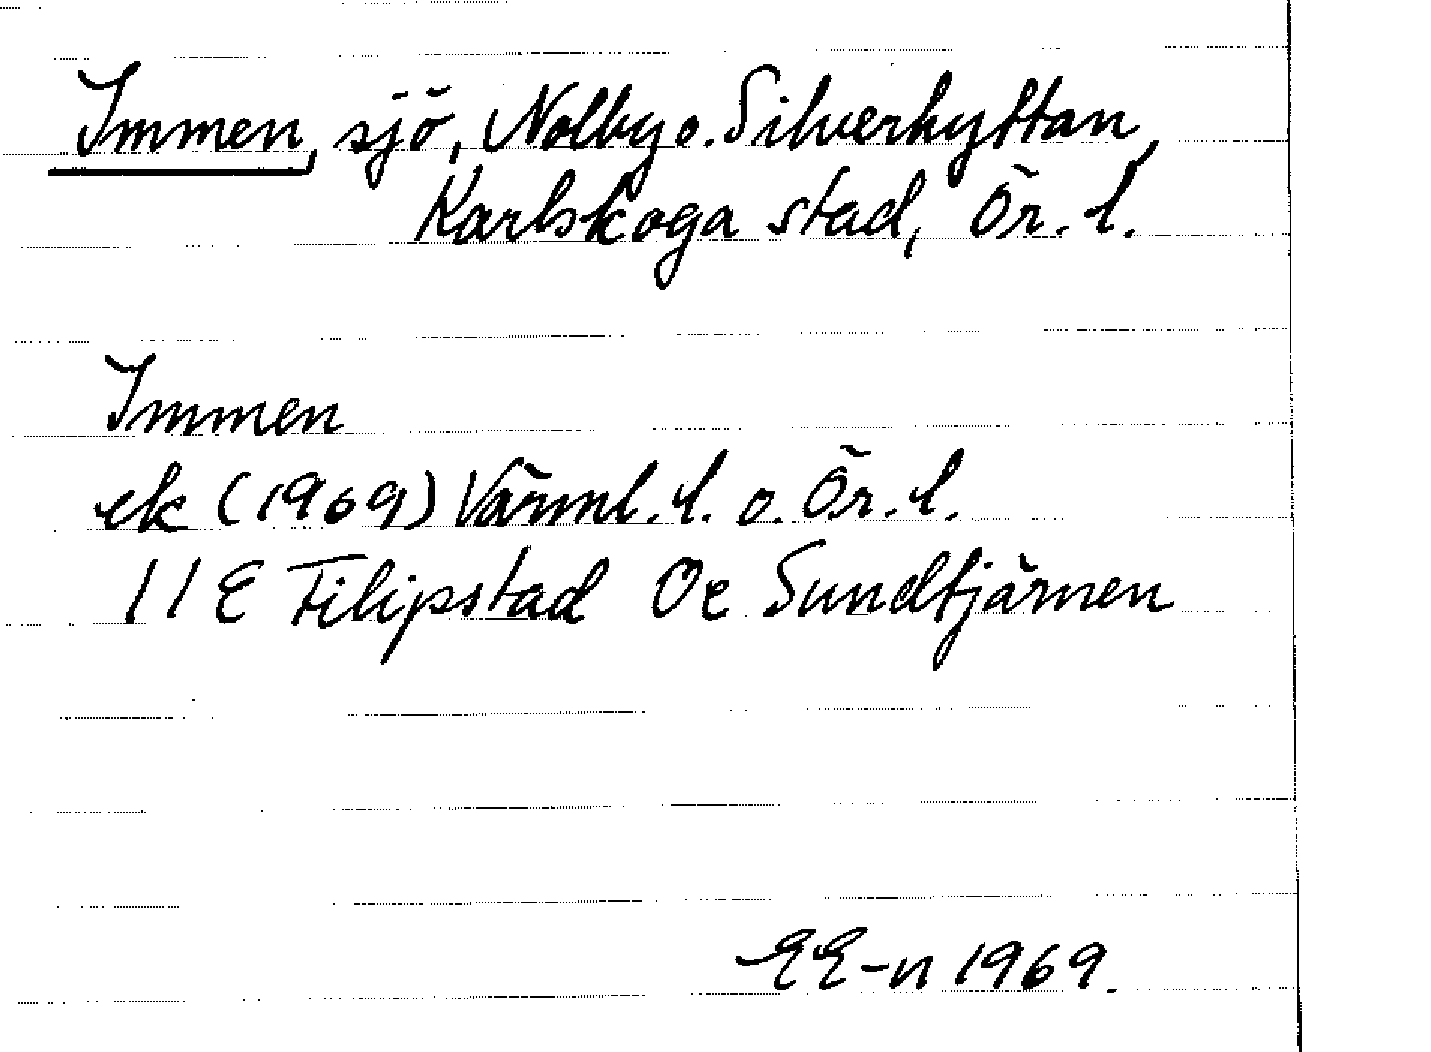 Immen, sjö, Nolby o. Silverhyttan,
Karlskoga stad, Ör. l.
Immen
ek (1969) Värml. l. o. Ör. l.
11 E Filipstad Oe Sundtjärnen
EE-n 1969.